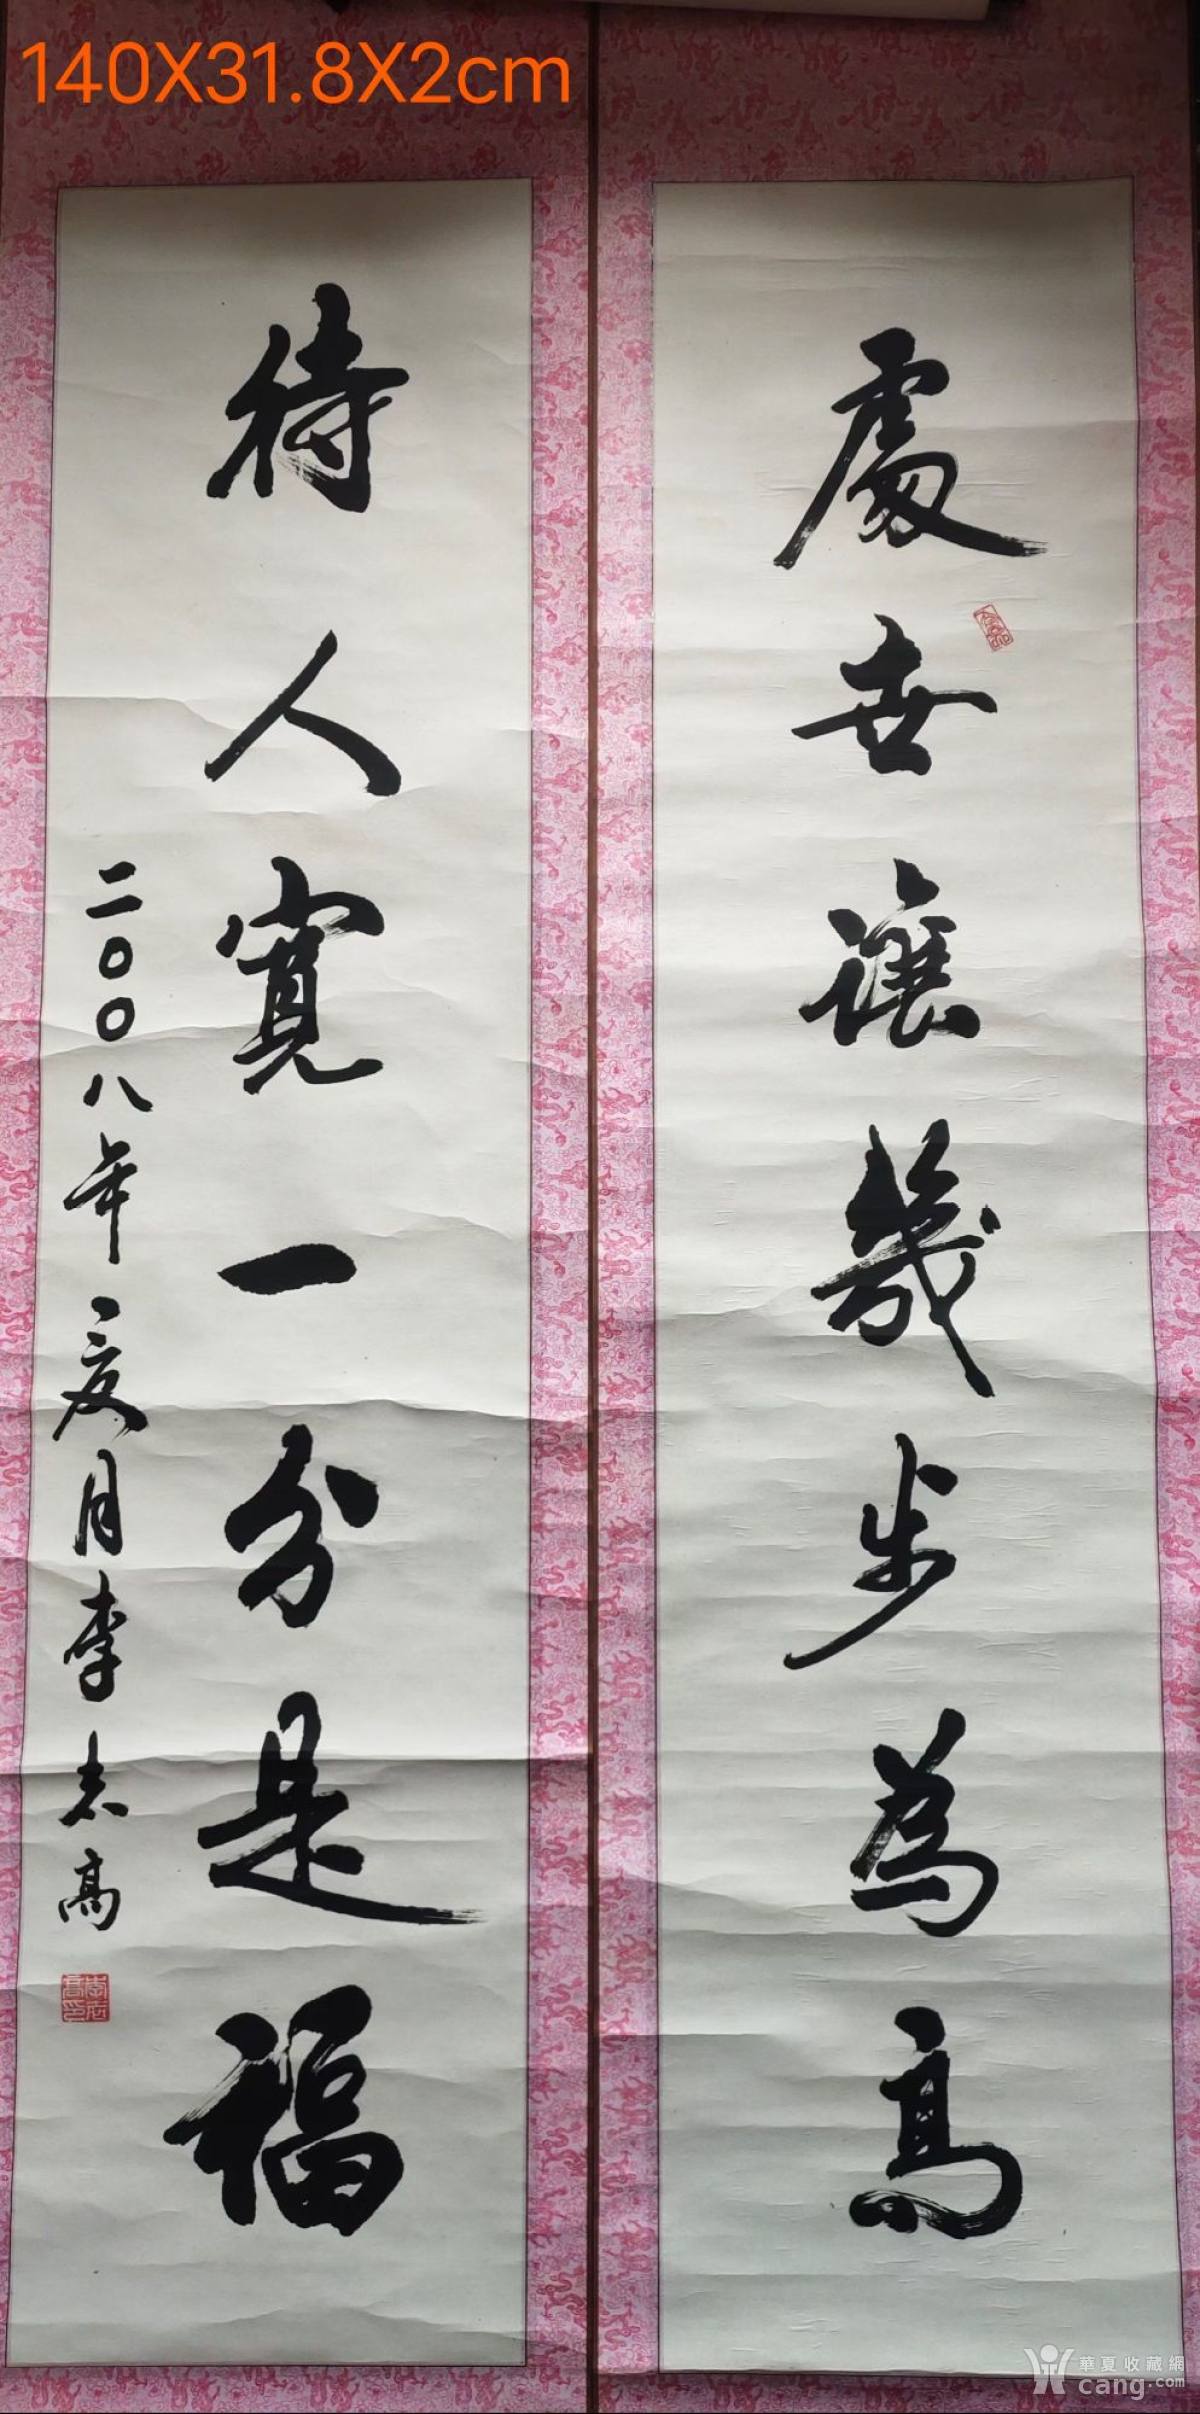 140X31.8X2cm
處世讓幾步為高
待人寬一分是福
二〇〇八年二夏月李志高
李志高印
華夏收藏網
cang.com